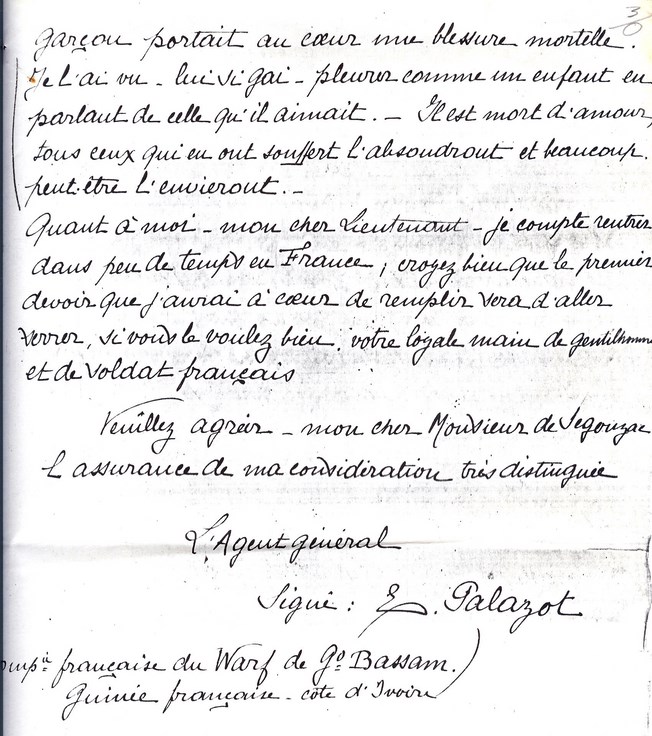 3/0
garçon portait au cœur une blessure mortelle.
Je l'ai vu - lui si gai - pleurer comme un enfant en
parlant de celle qu'il aimait. - Il est mort d'amour,
tous ceux qui en ont souffert l'absoudront et beaucoup.
peut-être l'envieront. -
Quant à moi - mon cher Lieutenant - je compte rentrer
dans peu de temps en France, croyez bien que le premier
devoir que j'aurai à cœur de remplir sera d'aller
serrer, si vous le voulez bien, votre loyale main de gentilhomme
et de soldat français
Veuillez agréer - mon cher Monsieur de Segonzac
l'assurance de ma considération très distinguée
L'Agent général
Signé : E. Palazot
ompie française du Warf de Gd Bassam.)
Guinée française - côte d'Ivoire